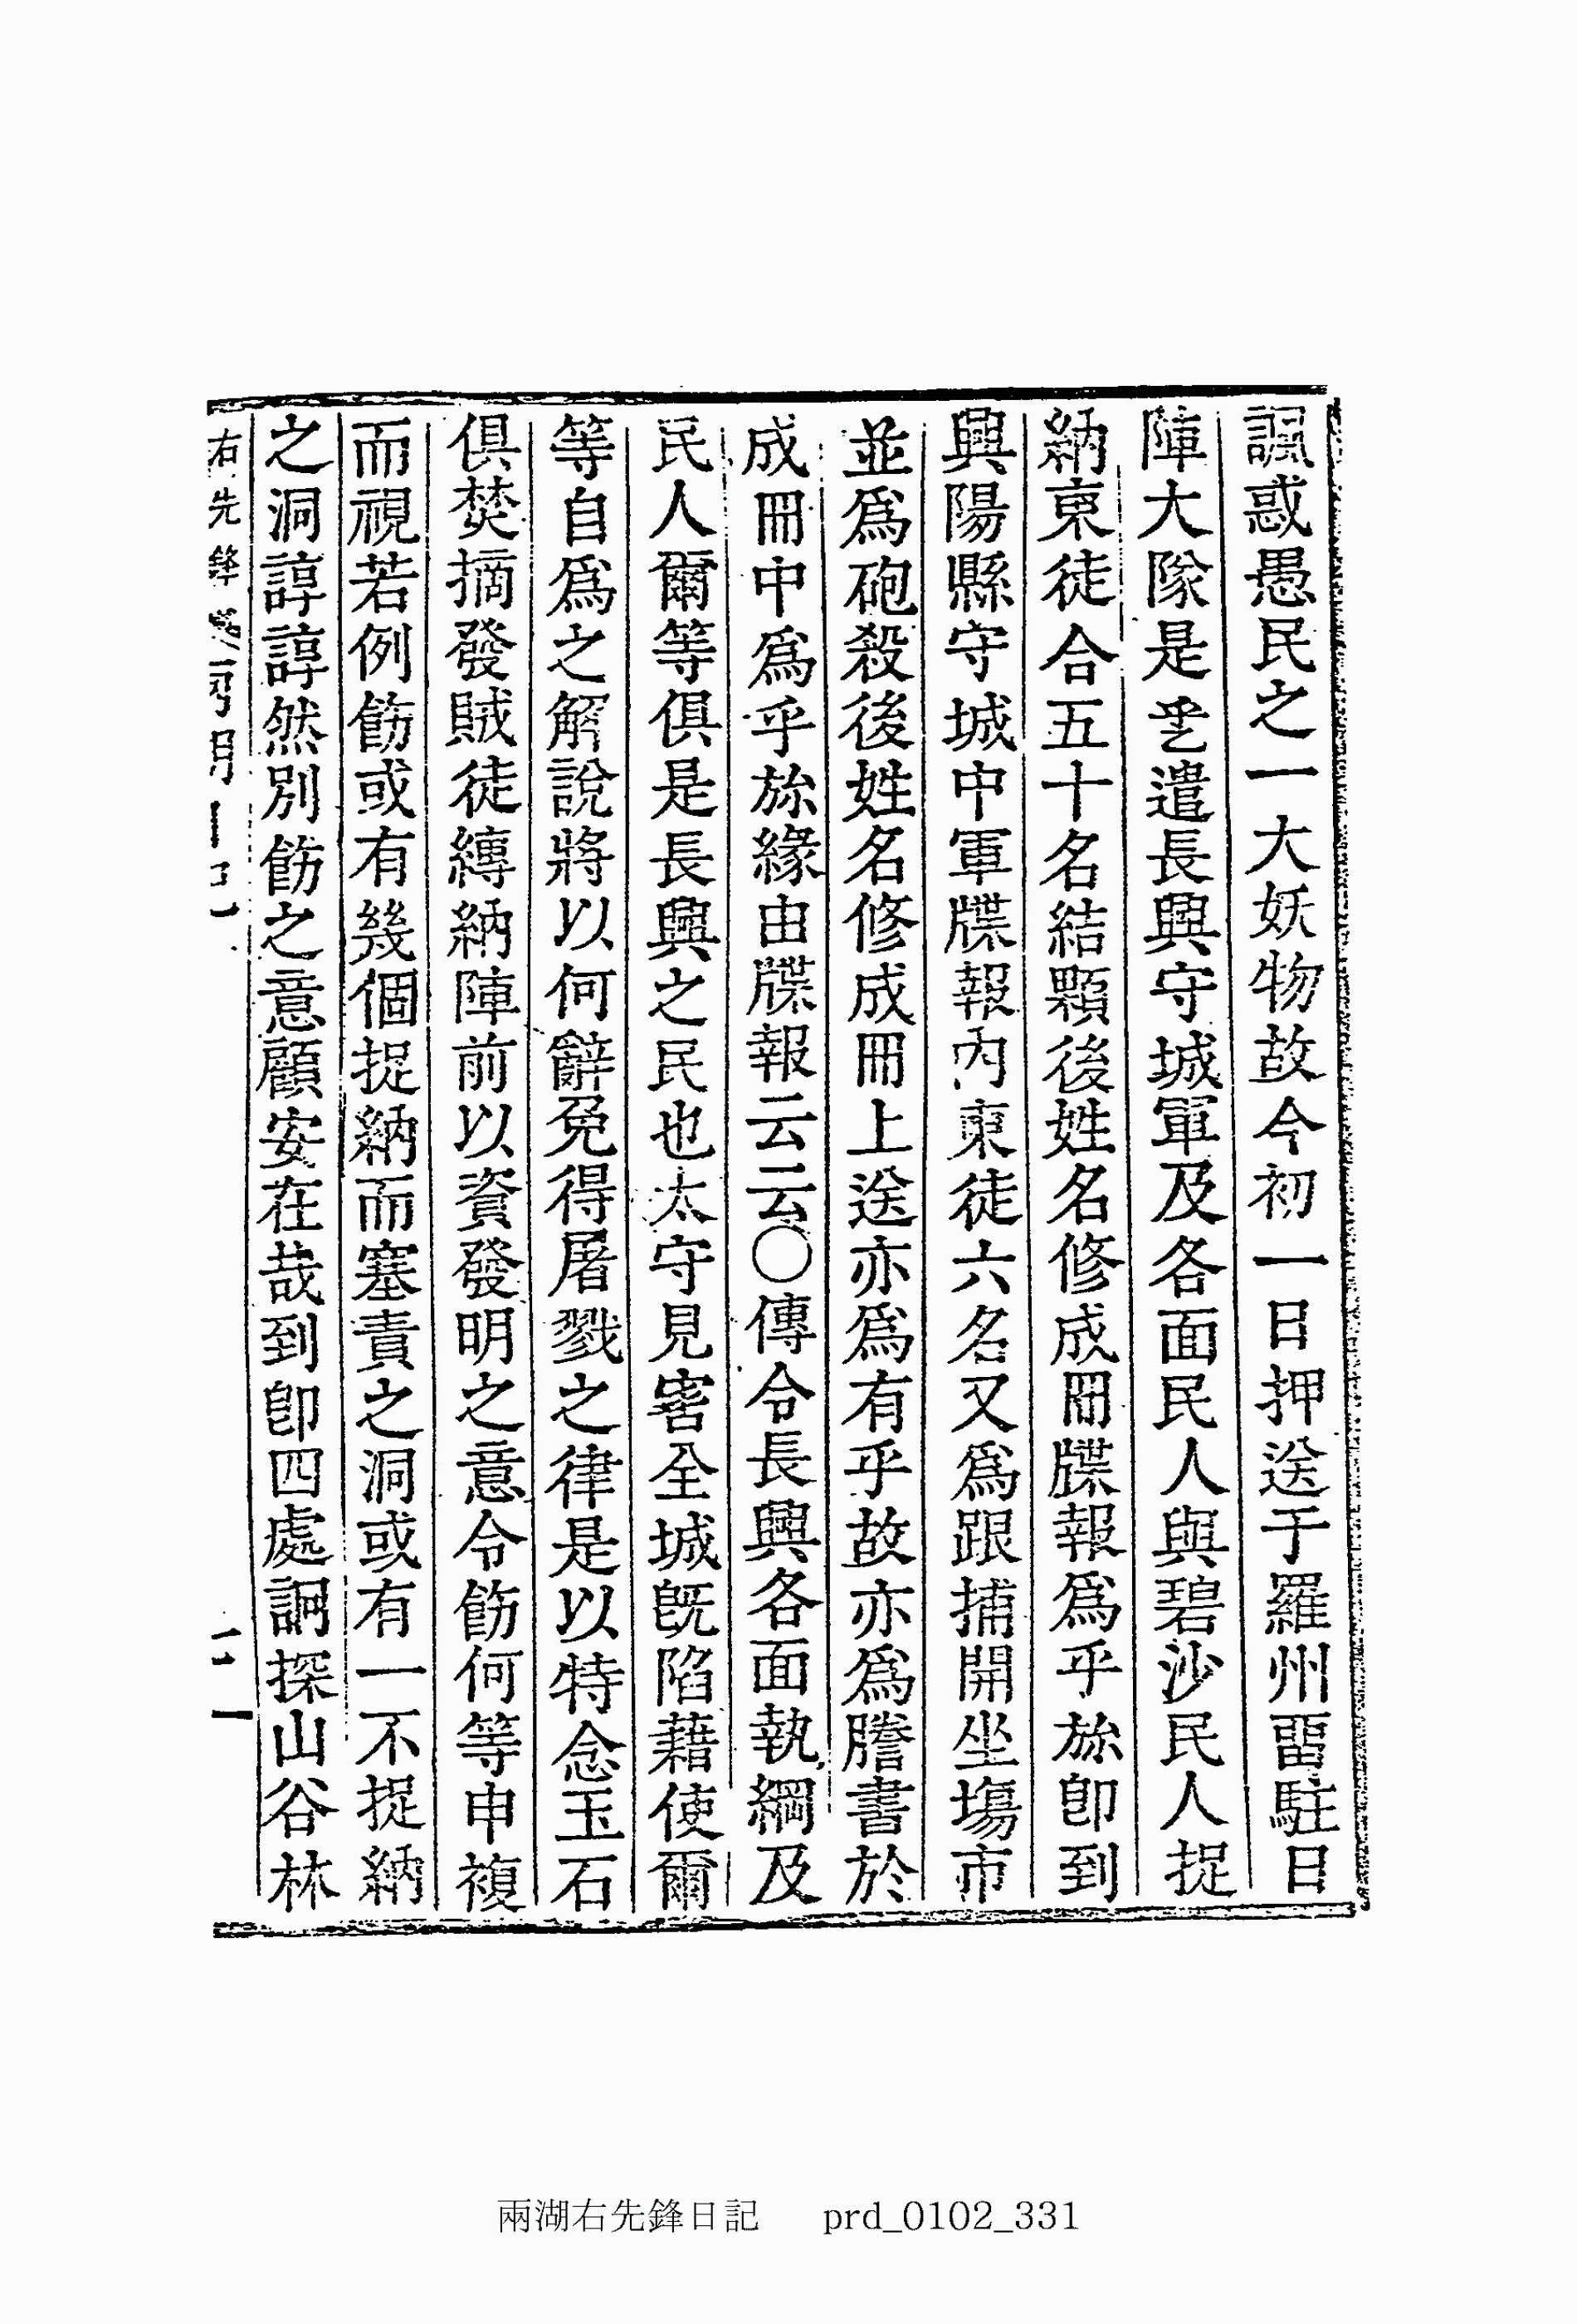 諷惑愚民之一大妖物故今初一日押送于羅州留駐日
陣大隊是乯遣長興守城軍及各面民人與碧沙民人捉
納東徒合五十名結顆後姓名修成冊牒報爲乎旀卽到
興陽縣守城中軍牒報內東徒六名又爲跟捕開坐塲市
並爲砲殺後姓名修成冊上送亦爲有乎故亦爲謄書於
成冊中爲乎旀緣由牒報云云○傳令長興各面執綱及
民人爾等俱是長興之民也太守見害全城旣陷藉使爾
等自爲之解說將以何辭免得屠戮之律是以特念玉石
俱焚摘發賊徒縛納陣前以資發明之意令飭何等申複
而視若例飭或有幾個捉納而塞責之洞或有一不捉納
之洞諄諄然別飭之意顧安在哉到卽四處詗探山谷林
右先鋒
二一
兩湖右先鋒日記 prd_0102_331